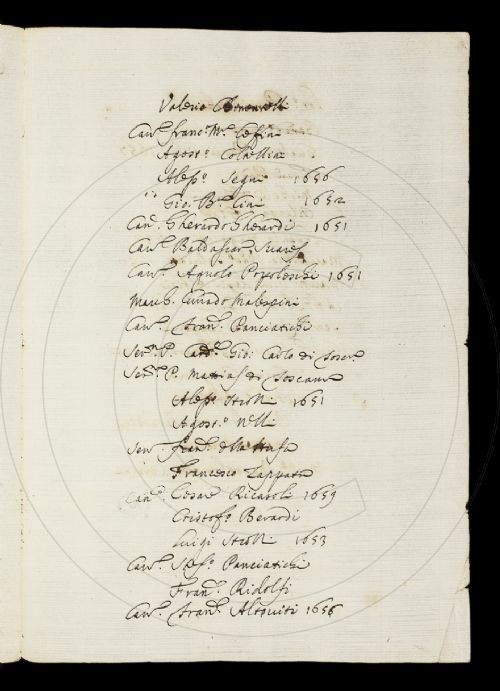 Valerio
Cav.ʳ Franc.º M.ª
Agost.º Coltellini
Aless.º Segni 1656
Gio. B.ª 1652
Cav.ʳ Gherardo Gherardi 1651
Cav.ʳ Baldassar Suares
Cav.ʳ Agnolo Popoleschi 1651
March. Malaspini
Cav.ʳ Fran.º Panciatichi
Ser.ᵐº P. Card.ˡ Gio: Carlo di Tosc.ª
Ser.ᵐº P. Mattias di Toscana
Aless.º Strozzi 1651
Agost.º Nelli
Sen.ʳ Fran.º della
Francesco Zappata
Can.º Cesare Ricasoli 1659
Cristof.º Berardi
Luigi Strozzi 1653
Cav.ʳ Panciatichi
Fran.º Ridolfi
Cav.ʳ Fran.º Altoviti 1656